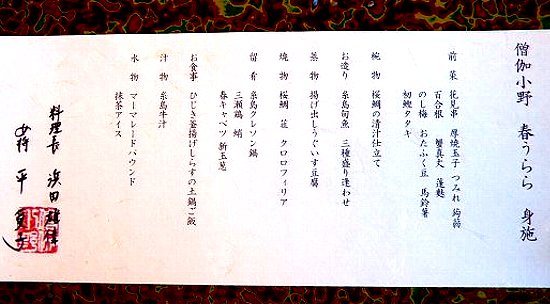 僧伽小野 春うらら 身施
前菜 花見串 厚焼玉子 つみれ 蒟蒻
百合根 蟹真丈 蓬麩
のし梅 おたふく豆 馬鈴薯
初鰹タタキ
椀物 桜鯛の清汁仕立て
お造り 糸島旬魚 三種盛り逢わせ
蒸物 揚げ出しうぐいす豆腐
焼物 桜鯛 菜 クロロフィリア
留肴 糸島クレソン鍋
三瀬鶏 蛸
春キャベツ 新玉葱
お食事 ひじき釜揚げしらすの土鍋ご飯
汁物 糸島牛汁
水物 マーマレードパウンド
抹茶アイス
料理長 浜田
女将 平